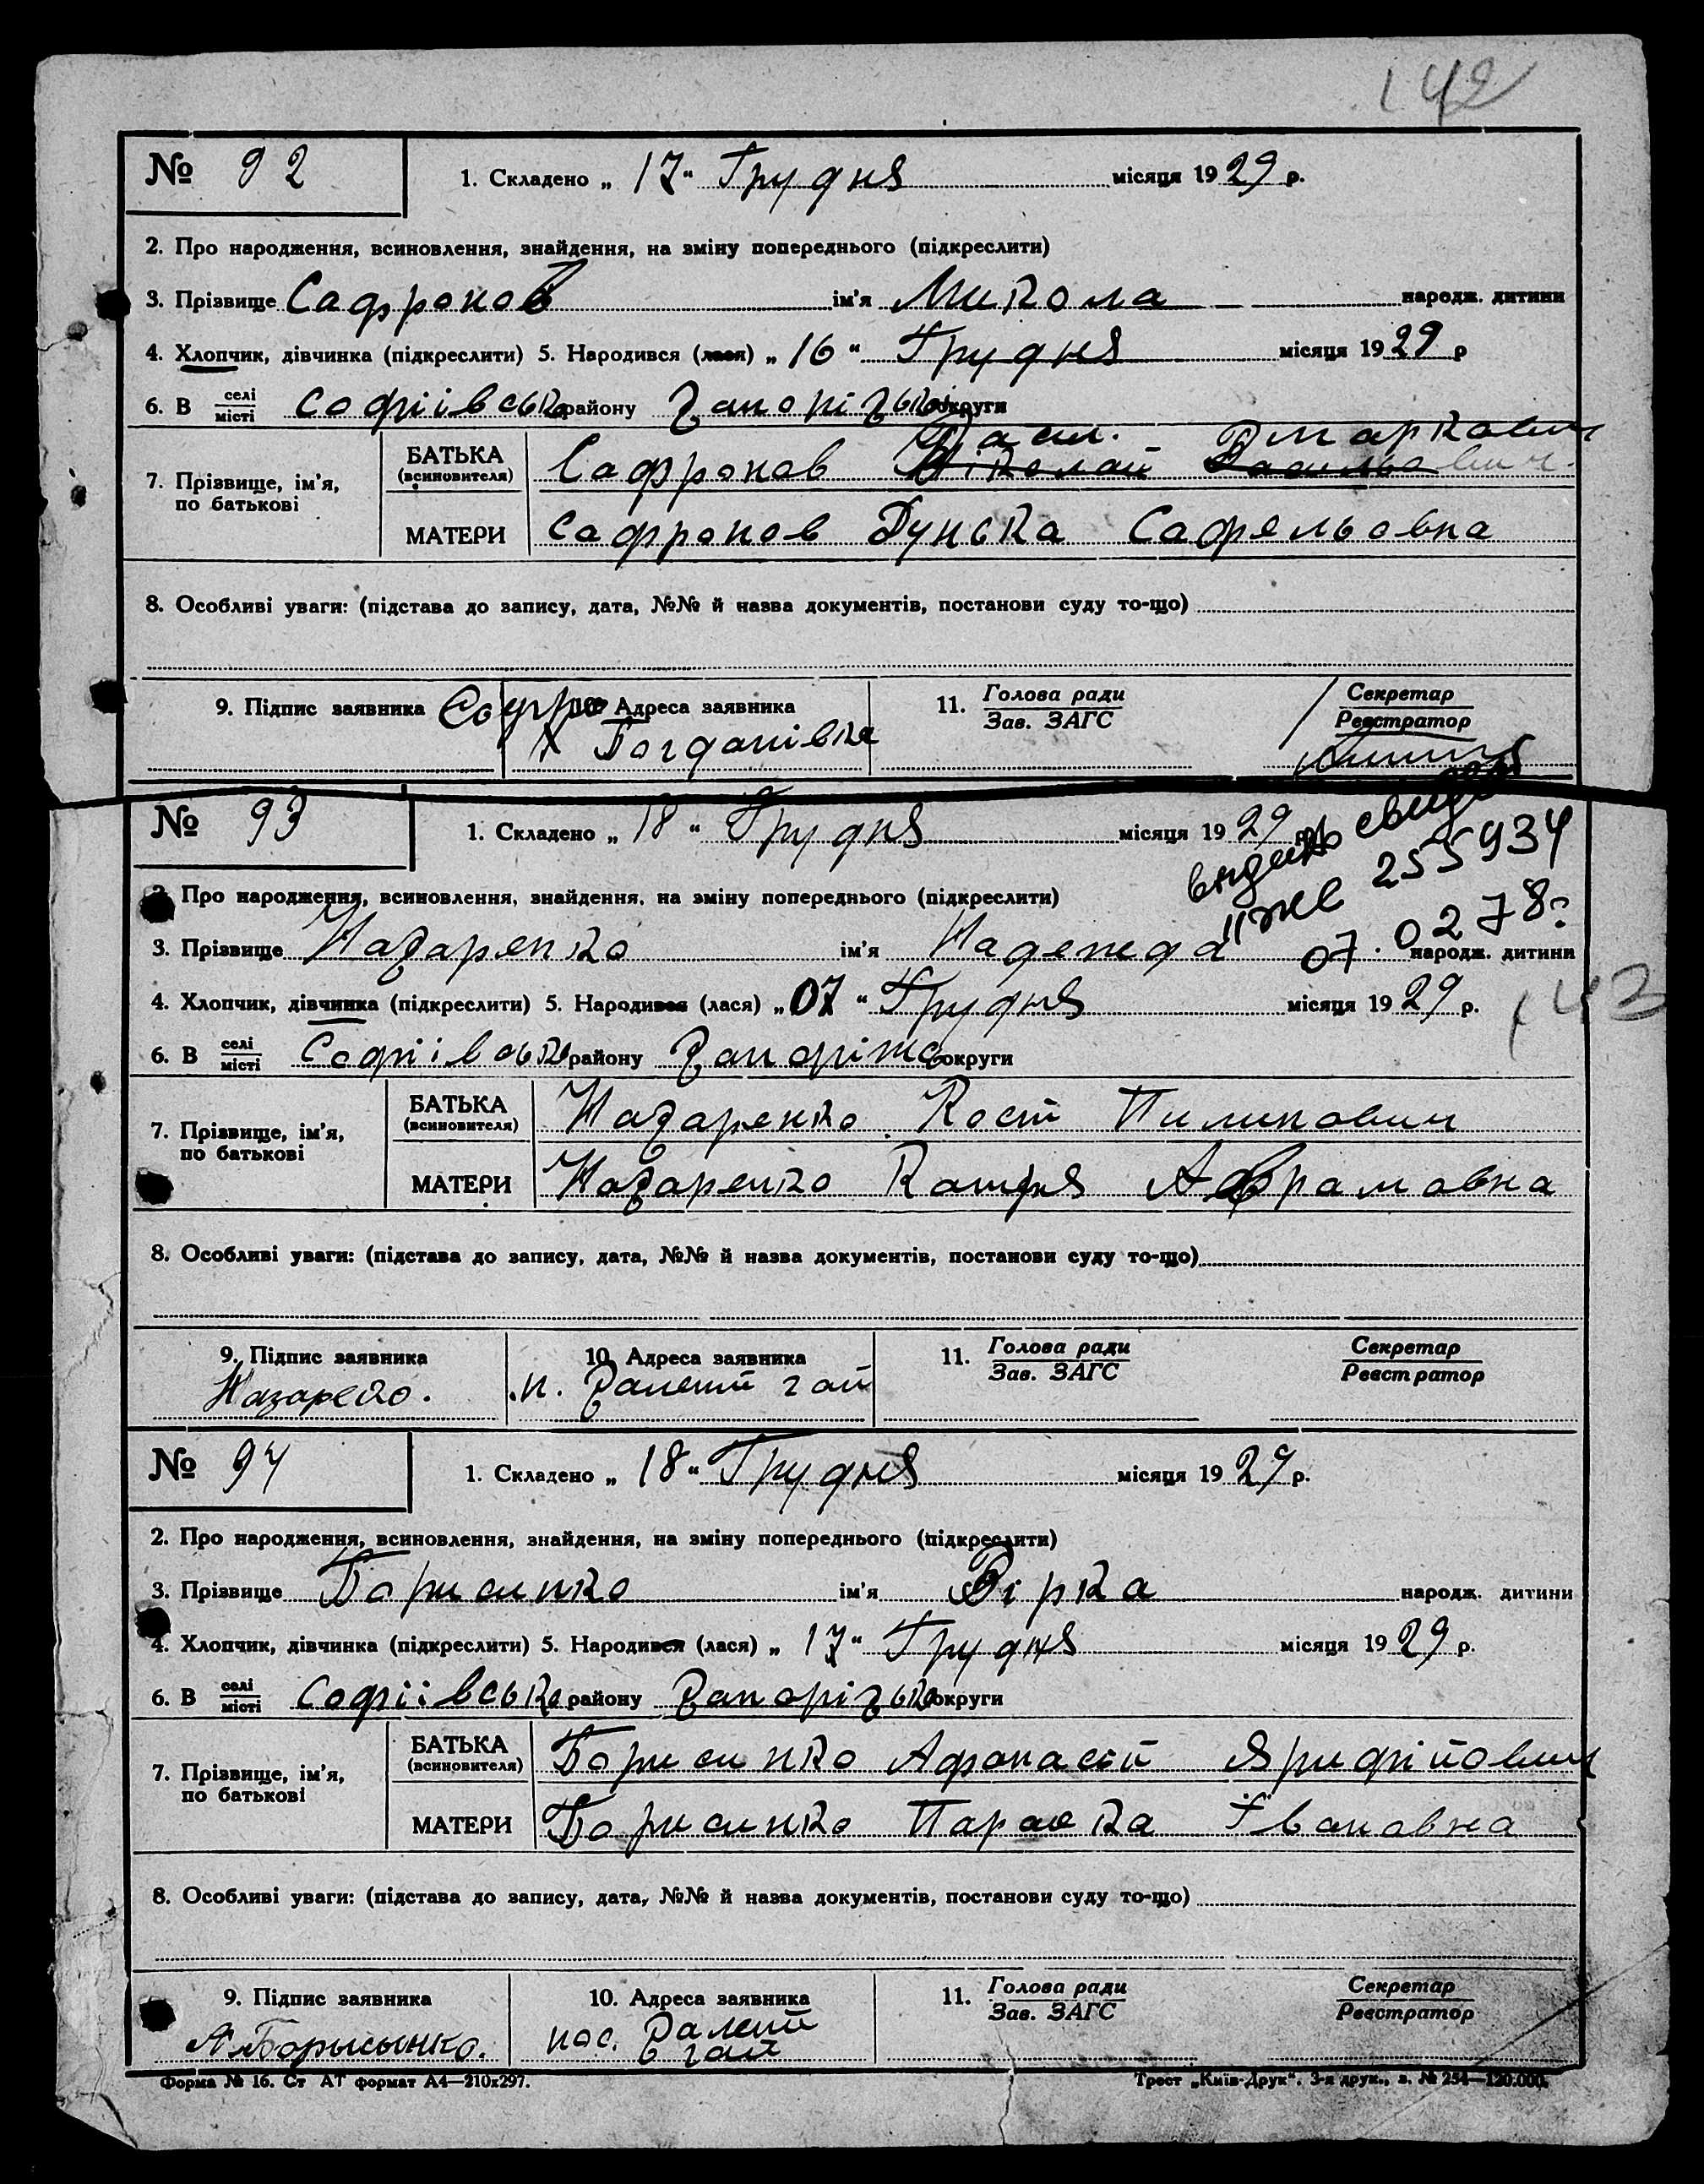 142
№ 92
1. Складено „ 17 “ Грудня місяця 1929 р.
2. Про народження, всиновлення, знайдення, на зміну попереднього (підкреслити)
3. Прізвище Сафронов ім'я Микола народж. дитини
4. Хлопчик, дівчинка (підкреслити) 5. Народився (лася) „ 16 “ Грудня місяця 1929 р
6. В селі/місті Софіівсько району Запорізько округи
Васил. Дмаркович
7. Прізвище, ім'я, по батькові БАТЬКА (всиновителя) Сафронов Николай Васильович
МАТЕРИ Сафронов Дунька Сафельовна
8. Особливі уваги: (підстава до запису, дата, №№ й назва документів, постанови суду то-що)
9. Підпис заявника Сафро 10. Адреса заявника 11. Голова ради/Зав. ЗАГС Секретар/Реєстратор
х Богданівка
№ 93
1. Складено „ 18 “ Грудня місяця 1929 р.
видано свидет
ІІ ЖС 255934
07.02 78г
2. Про народження, всиновлення, знайдення, на зміну попереднього (підкреслити)
3. Прізвище Назаренко ім'я Надежда народж. дитини
4. Хлопчик, дівчинка (підкреслити) 5. Народився (лася) „ 07 “ Грудня місяця 1929 р.
143
6. В селі/місті Софіівсько району Запоріжс округи
7. Прізвище, ім'я, по батькові БАТЬКА (всиновителя) Назаренко Кость Пилипович
МАТЕРИ Назаренко Катря Афрамовна
8. Особливі уваги: (підстава до запису, дата, №№ й назва документів, постанови суду то-що)
9. Підпис заявника 10. Адреса заявника 11. Голова ради/Зав. ЗАГС Секретар/Реєстратор
Назаренко. п. Залений гай
№ 94
1. Складено „ 18 “ Грудня місяця 1929 р.
2. Про народження, всиновлення, знайдення, на зміну попереднього (підкреслити)
3. Прізвище Борисинко ім'я Вірка народж. дитини
4. Хлопчик, дівчинка (підкреслити) 5. Народився (лася) „ 17 “ Грудня місяця 1929 р.
6. В селі/місті Софіівсько району Запорізько округи
7. Прізвище, ім'я, по батькові БАТЬКА (всиновителя) Борисинко Афонасій Ярифійович
МАТЕРИ Борисинко Параска Івановна
8. Особливі уваги: (підстава до запису, дата, №№ й назва документів, постанови суду то-що)
9. Підпис заявника 10. Адреса заявника 11. Голова ради/Зав. ЗАГС Секретар/Реєстратор
А. Борысынко. пос. Залений гай
Форма № 16. Ст АТ формат А4—210х297. Трест „Київ-Друк“. 3-я друк., з. № 254—120.000.